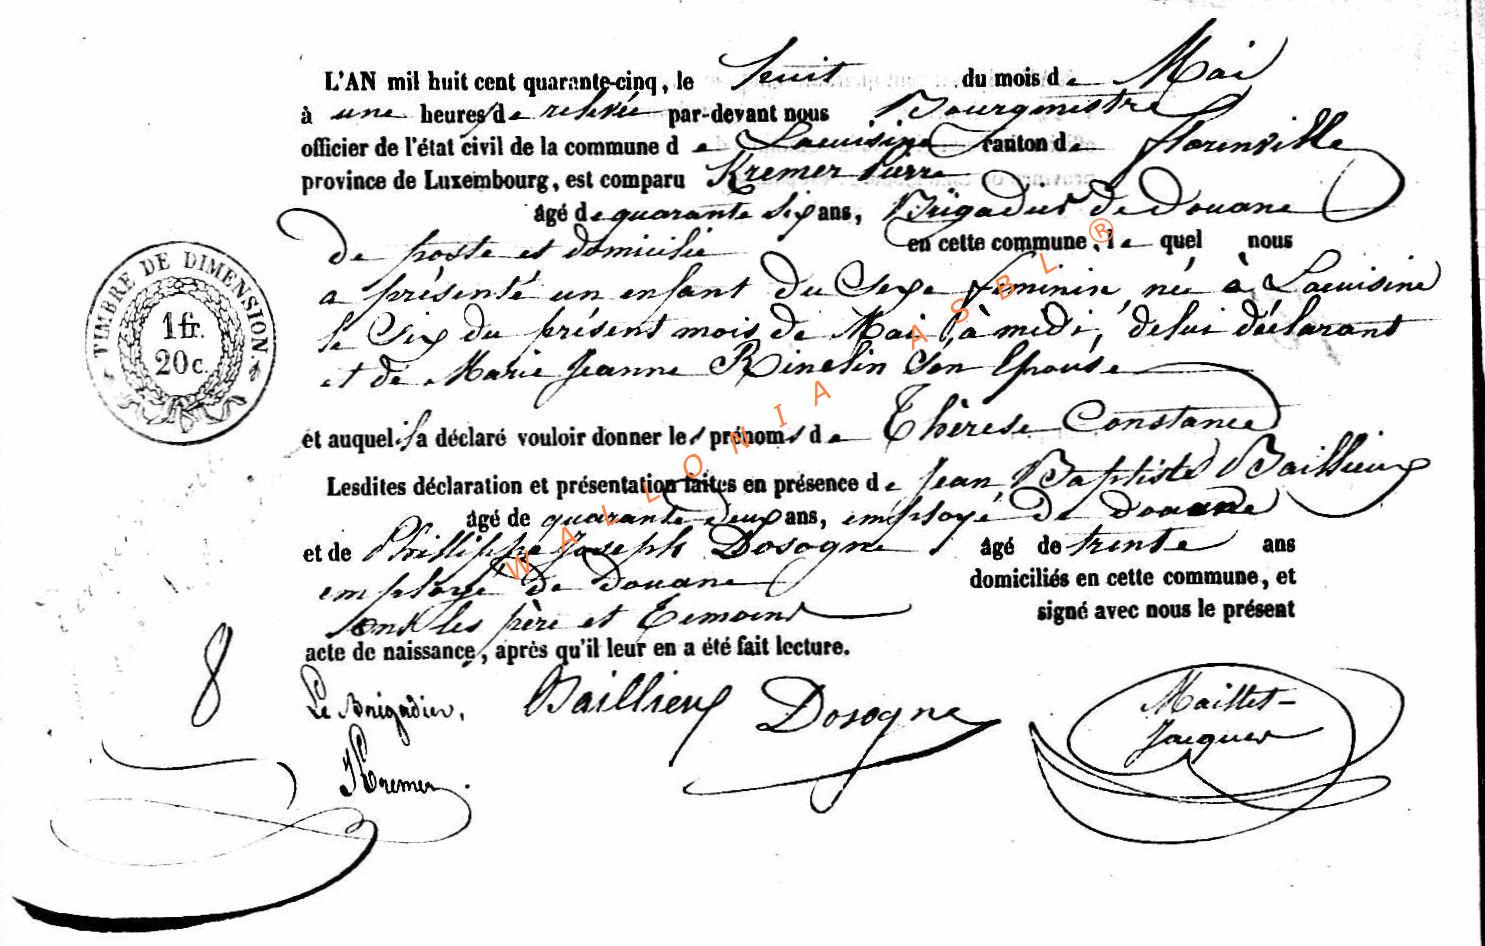 L'AN mil huit cent quarante-cinq, le huit du mois de Mai
à une heures de relevée par-devant nous Bourgmestre
officier de l'état civil de la commune de Lacuisine canton de Florenville
province de Luxembourg, est comparu Kremer Pierre
âgé de quarante six ans, Brigadier de Douane
de poste et domicilié en cette commune, lequel nous
a présenté un enfant du Sexe feminin, née à Lacuisine
le Six du présent mois de Mai, à midi, de lui déclarant
et de Marie Jeanne son Epouse
et auquel il a déclaré vouloir donner les prénoms de Thérèse Constance
Lesdites déclaration et présentation faites en présence de Jean Baptiste Baillieux
âgé de quarante deux ans, employé de douane
et de Philippe Joseph Dosogne âgé de trente ans
employé de douane domiciliés en cette commune, et
ont les père et temoins signé avec nous le présent
acte de naissance, après qu'il leur en a été fait lecture.
TIMBRE DE DIMENSION.
1 fr.
20 c.
WALLONIA ASBL ®
8
Le Brigadier, Baillieux Dosogne Maillet-
Jacques
Kremer.